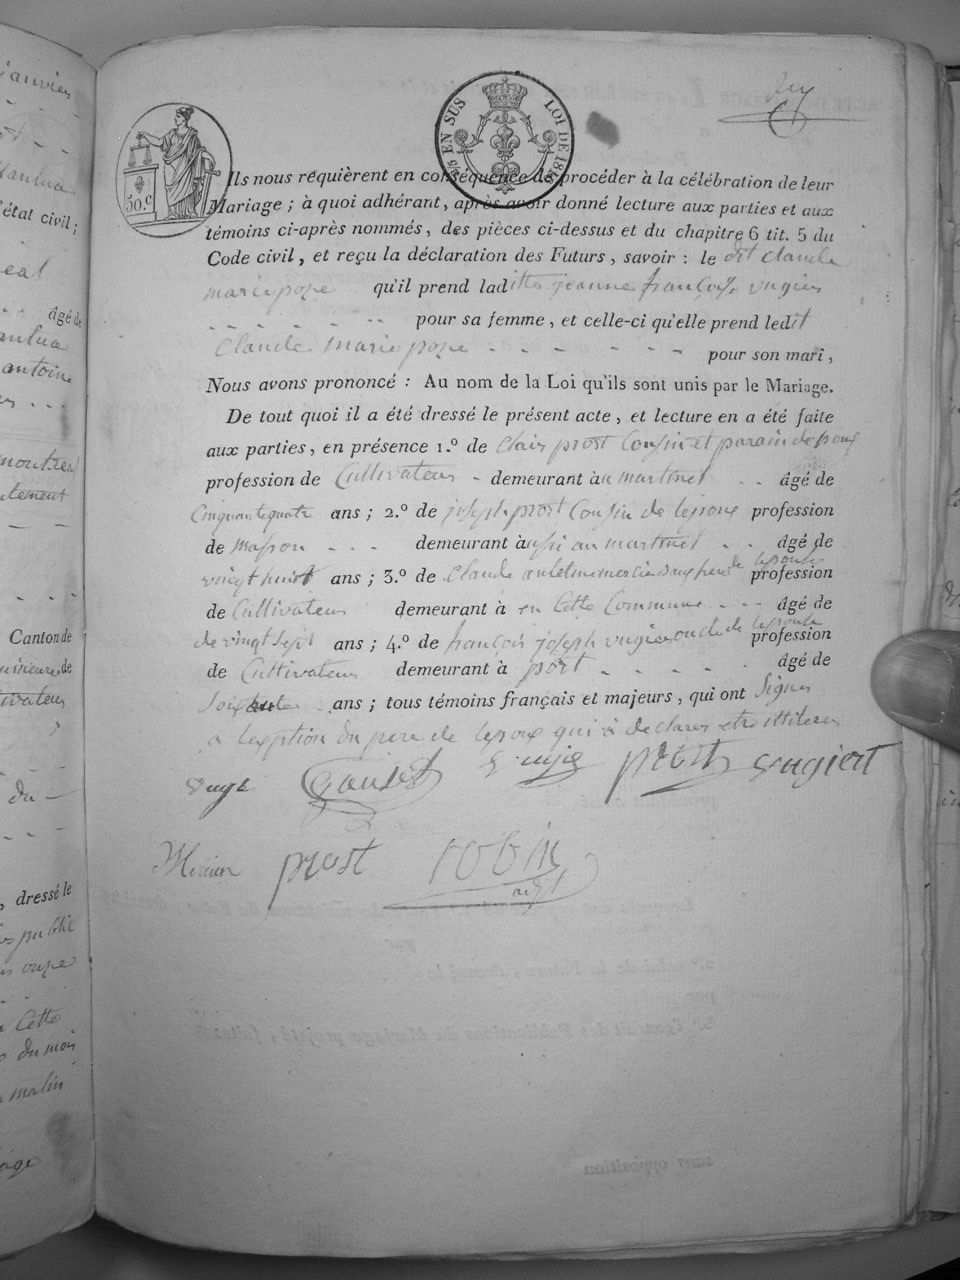 30.C
1/5 EN SUS LOI DE 181
Ils nous requièrent en conséquence de procéder à la célébration de leur
Mariage ; à quoi adhérant, après avoir donné lecture aux parties et aux
témoins ci-après nommés, des pièces ci-dessus et du chapitre 6 tit. 5 du
Code civil, et reçu la déclaration des Futurs, savoir : le dit claude
marie poze qu'il prend laditte jeanne françoise vugier
pour sa femme, et celle-ci qu'elle prend ledit
Claude marie poze pour son mari,
Nous avons prononcé : Au nom de la Loi qu'ils sont unis par le Mariage.
De tout quoi il a été dressé le présent acte, et lecture en a été faite
aux parties, en présence 1.° de clair prost Cousin et parain de
profession de Cultivateur - demeurant à au martinet âgé de
Cinquantequatre ans ; 2.° de joseph prost Cousin de lepoux profession
de masson demeurant à aussi au martinet âgé de
vingt huit ans ; 3.° de Claude anthelme de lepoux profession
de Cultivateur demeurant à en Cette Commune âgé de
de vingt sept ans ; 4.° de françois joseph vugier oncle de lepouse profession
de Cultivateur demeurant à port âgé de
ans ; tous témoins français et majeurs, qui ont Signer
a lexption du pere de lepoux qui à declarer etre illiterer
Goudet prost vugiert
Mercier prost robin
adjt
janvier
l'état civil ;
âgé de
antoine
montreal
Canton de
du
, dressé le
publié
Cette
du mois
matin